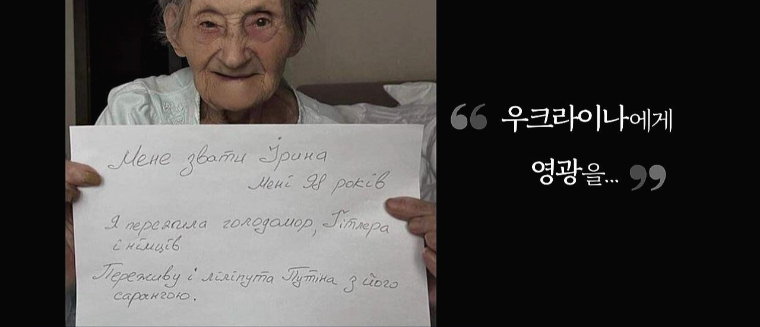 Мене звати Ірина
Мені 98 років
Я пережила голодомор, Гітлера
і німців
Переживу і ліліпута Путіна з його
саранчою.
“ 우크라이나에게
영광을... ”